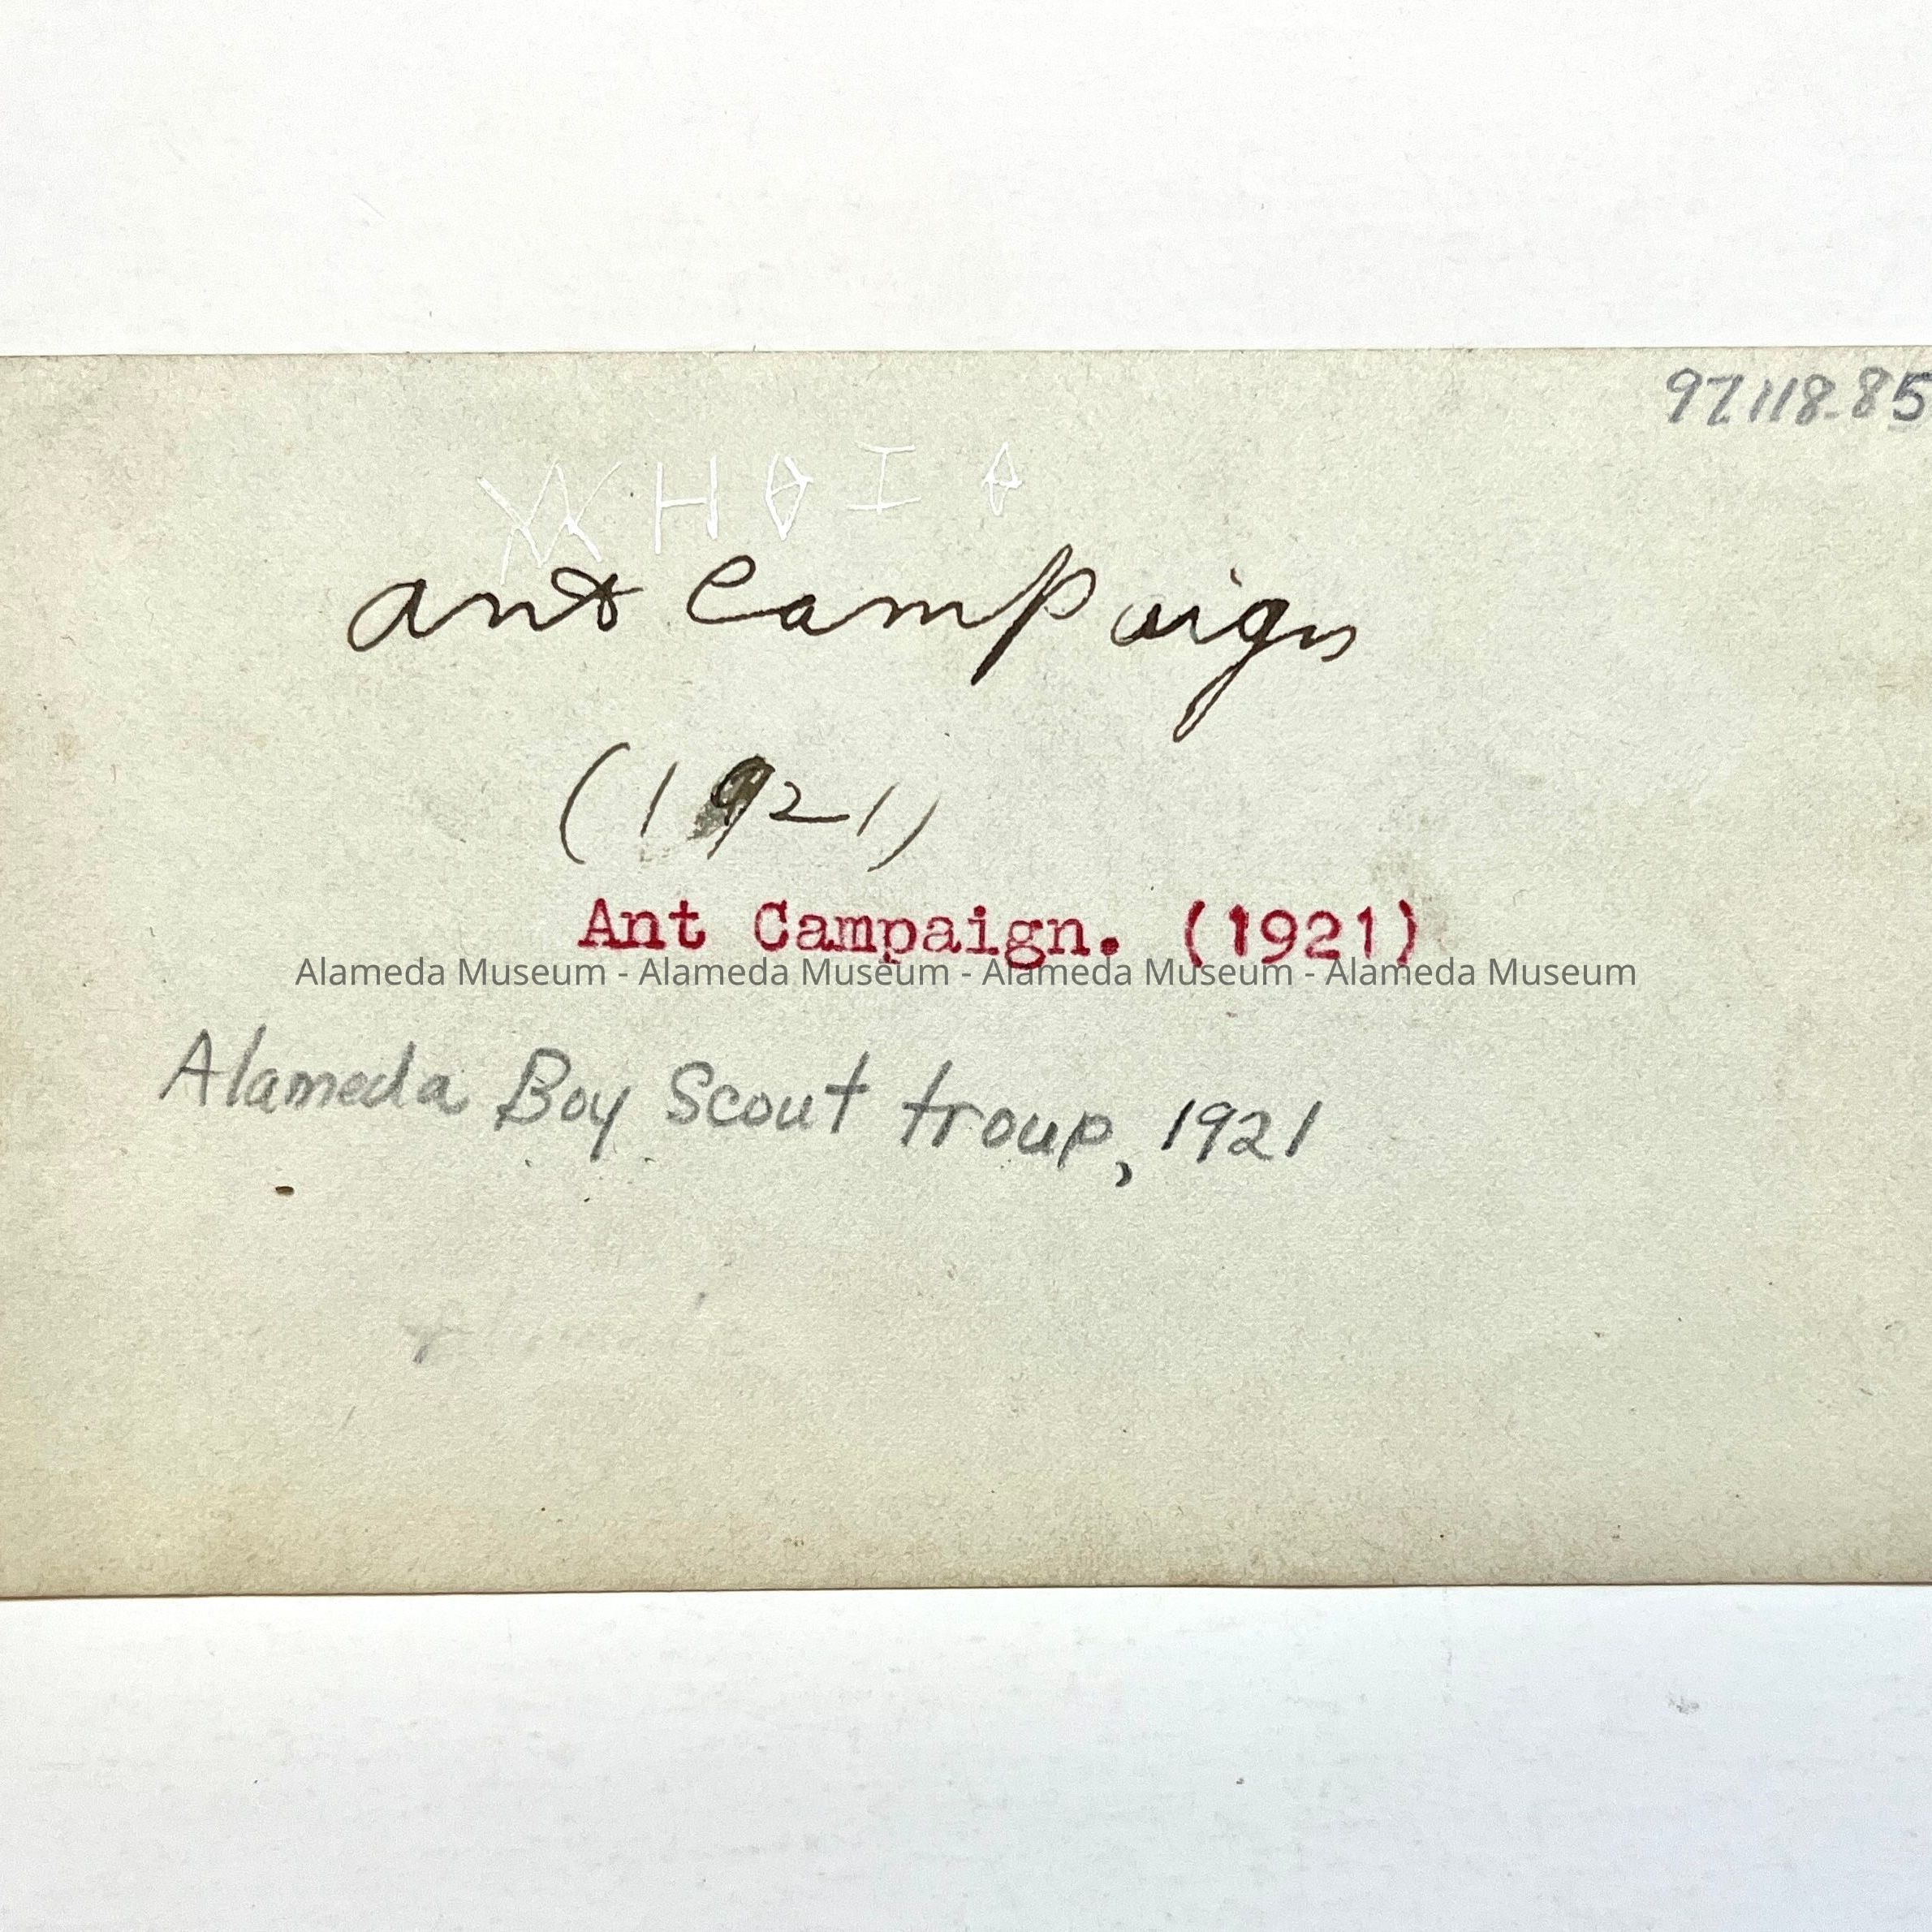 97118-85
ant Campaign
(1921)
Ant Campaign. (1921)
Alameda Museum - Alameda Museum - Alameda Museum - Alameda Museum
Alameda Boy Scout troup, 1921